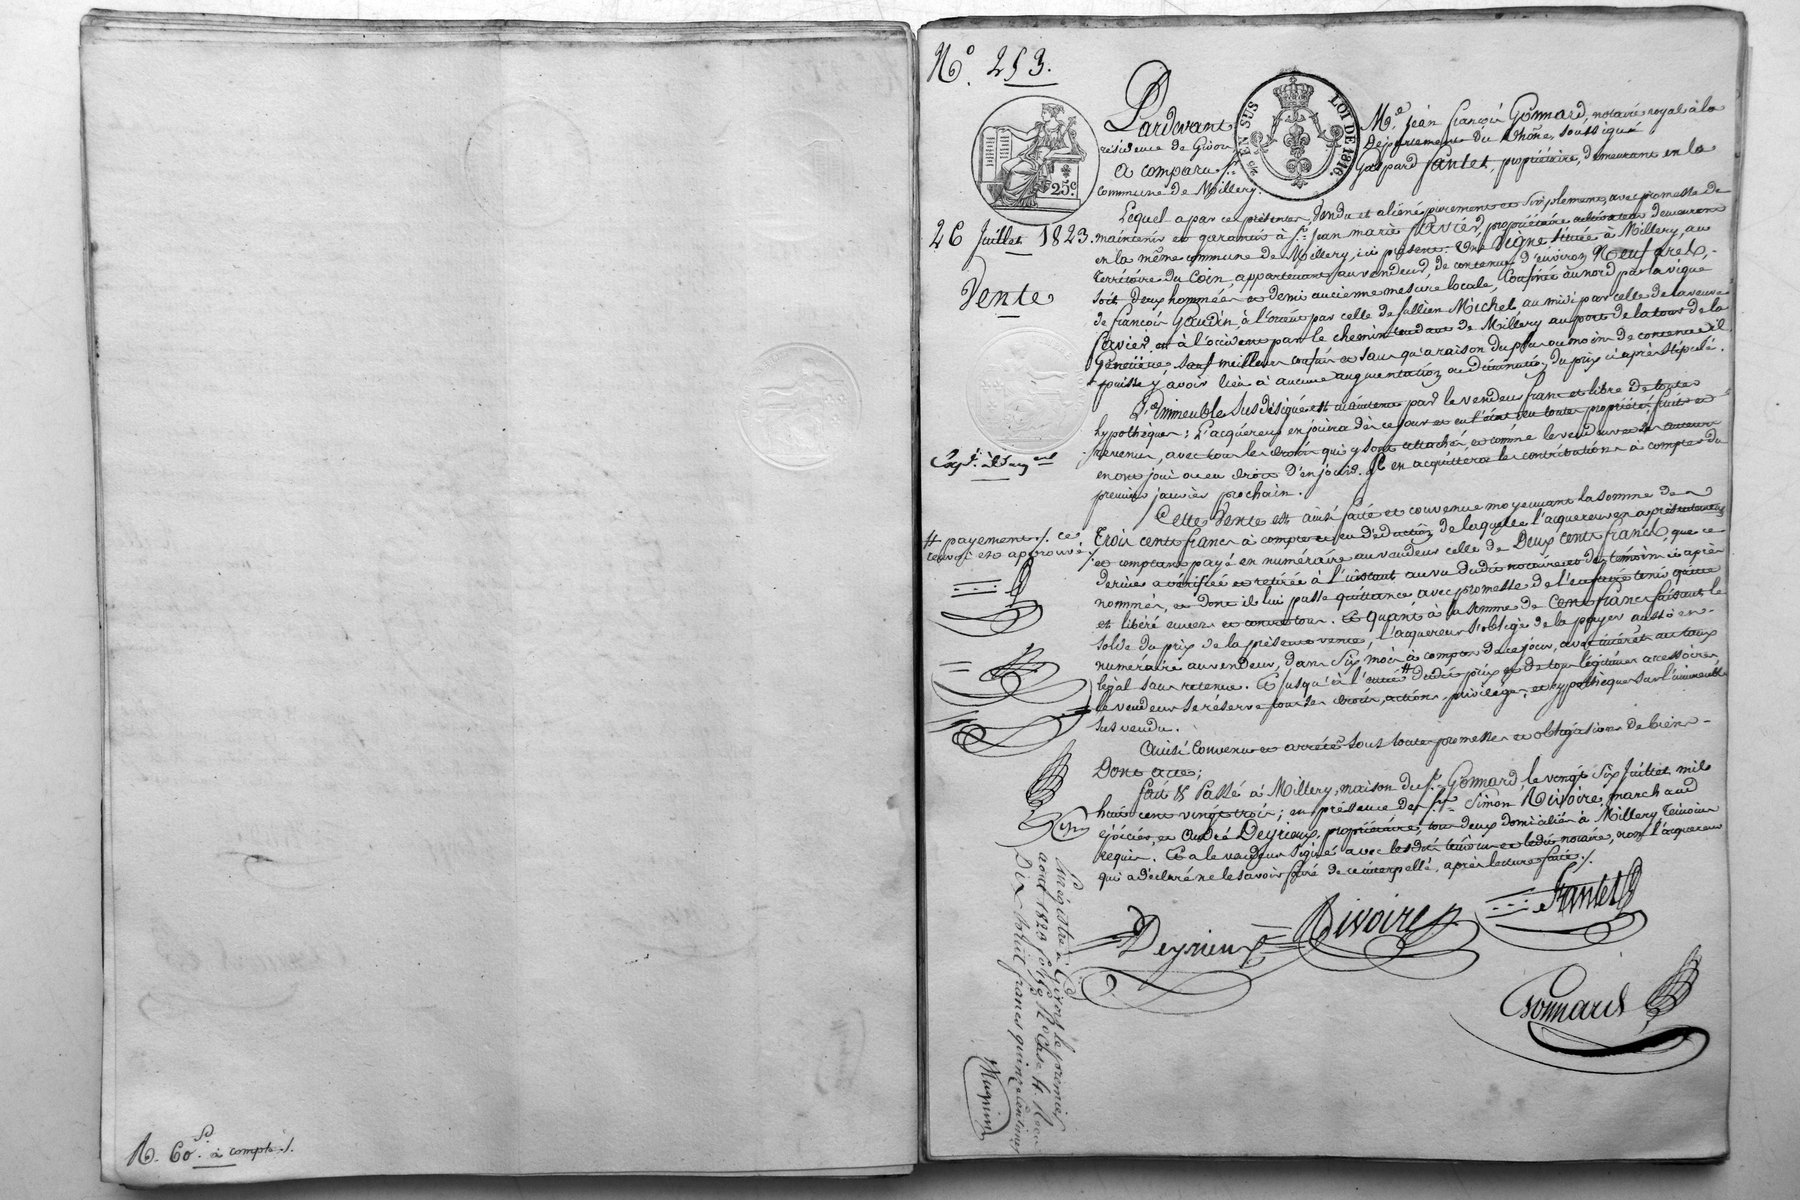 R. 60.s à compte /.
N.o 253.
25c.
c/es EN SUS
LOI DE 1816.
26 Juillet 1823.
Vente
Exp.é à l'acq.eur
# payement /. ce
renvoi est approuvé /.
Pardevant M.e Jean françois Gonnard, notaire royal à la
résidence de Givors Département du Rhône, soussigné
A comparu s.r gaspard fantet, propriétaire, demeurant en la
commune de Millery.
Lequel a par ces présentes, vendu et aliéné purement et simplement, avec promesse de
maintenir et garantir à s.r Jean marie favier, propriétaire cultivateur demeurant
en la même commune de Millery, ici présent. Une Vigne située à Millery, au
territoire du Coin, appartenant au vendeur, de contenue d'environ Neuf ares,
soit deux hommées et demi ancienne mesure locale, Confinée au nord par la vigne
de françois Gaudin, à l'orient par celle de Jullien Michel, au midi par celle de la veuve
favier, et à l'occident par le chemin tendant de Millery au port de la tour de la
Génetière sauf meilleurs confins et sans qu'à raison du plus ou moins de contenue il
puisse y avoir lieu à aucune augmentation ou diminution du prix ci après stipulé.
L'immeuble susdésigné est maintenu par le vendeur franc et libre de toutes
hypothèques : L'acquéreur en jouira dès ce jour et en l'état en toute propriété, fruits et
revenus, avec tous les droits qui y sont attachés et comme le vendeur et ses auteurs
en ont joui ou eu droit d'en jouir. Il en acquittera les contributions à compter du
premier janvier prochain.
Cette Vente est ainsi faite et convenue moyennant la somme de
Trois cents francs à compte et en déduction de laquelle l'acquéreur en a présentement
et comptant payé en numéraire au vendeur celle de Deux cents francs, que ce
dernier a vérifiée et retirée à l'instant au vu dudit notaire et des témoins ci après
nommés, et dont il lui passe quittance avec promesse de l'en faire tenir quitte
et libéré envers et contre tous. Et quant à la somme de Cent francs faisant le
solde du prix de la présente vente, l'acquéreur s'oblige de la payer aussi en
numéraire au vendeur, dans six mois à compter de ce jour, avec intérêt au taux
légal sans retenue. Et jusqu'à l'entier # dudit prix et de tous légitimes accessoires,
le vendeur se réserve tous ses droits, actions, privilége, et hypothèque sur l'immeuble
sus vendu.
Ainsi convenu et arrêté sous toutes promesses et obligations de biens.
Dont acte ;
fait & Passé à Millery, maison du s.r Gonnard, le vingt six Juillet mil
huit cent vingt trois ; en présence des s.rs Simon Rivoire, marchand
épicier, et André Deyrieux, propriétaire, tous deux domiciliés à Millery, témoins
requis. Et a le vendeur signé avec lesdits témoins et ledit notaire, non l'acquéreur
qui a déclaré ne le savoir faire de ce interpellé, après lecture faite. /.
fantet
Rivoire
Deyrieux
Gonnard
Enregistré à Givors le premier
août 1823 f.o 159 V.o Case 4. Reçu
Dix huit francs quinze Centimes
Mugnin